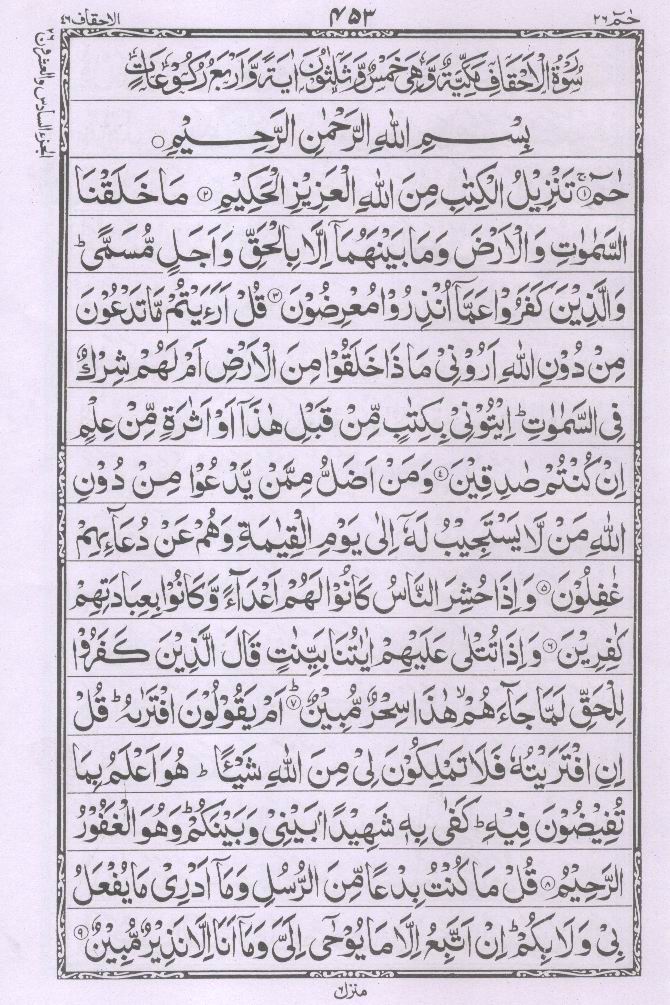 حٰمٓ ٢٦
٤٥٣
الاحقاف ٤٦
الجزء السادس والعشرون ٢٦
سُوْرَةُ الْاَحْقَافِ مَكِّيَّةٌ وَّهِيَ خَمْسٌ وَّثَلٰثُوْنَ اٰيَةً وَّاَرْبَعُ رُكُوْعَاتٍ
بِسْمِ اللّٰهِ الرَّحْمٰنِ الرَّحِيْمِ ○
حٰمٓ ۚ﴿۱﴾ تَنْزِيْلُ الْكِتٰبِ مِنَ اللّٰهِ الْعَزِيْزِ الْحَكِيْمِ ﴿۲﴾ مَا خَلَقْنَا
السَّمٰوٰتِ وَالْاَرْضَ وَمَا بَيْنَهُمَآ اِلَّا بِالْحَقِّ وَاَجَلٍ مُّسَمًّى ؕ
وَالَّذِيْنَ كَفَرُوْا عَمَّآ اُنْذِرُوْا مُعْرِضُوْنَ ﴿۳﴾ قُلْ اَرَءَيْتُمْ مَّا تَدْعُوْنَ
مِنْ دُوْنِ اللّٰهِ اَرُوْنِيْ مَاذَا خَلَقُوْا مِنَ الْاَرْضِ اَمْ لَهُمْ شِرْكٌ
فِي السَّمٰوٰتِ ؕ اِيْتُوْنِيْ بِكِتٰبٍ مِّنْ قَبْلِ هٰذَآ اَوْ اَثٰرَةٍ مِّنْ عِلْمٍ
اِنْ كُنْتُمْ صٰدِقِيْنَ ﴿٤﴾ وَمَنْ اَضَلُّ مِمَّنْ يَّدْعُوْا مِنْ دُوْنِ
اللّٰهِ مَنْ لَّا يَسْتَجِيْبُ لَهٗٓ اِلٰى يَوْمِ الْقِيٰمَةِ وَهُمْ عَنْ دُعَآئِهِمْ
غٰفِلُوْنَ ﴿۵﴾ وَاِذَا حُشِرَ النَّاسُ كَانُوْا لَهُمْ اَعْدَآءً وَّكَانُوْا بِعِبَادَتِهِمْ
كٰفِرِيْنَ ﴿۶﴾ وَاِذَا تُتْلٰى عَلَيْهِمْ اٰيٰتُنَا بَيِّنٰتٍ قَالَ الَّذِيْنَ كَفَرُوْا
لِلْحَقِّ لَمَّا جَآءَهُمْ ۙ هٰذَا سِحْرٌ مُّبِيْنٌ ؕ﴿۷﴾ اَمْ يَقُوْلُوْنَ افْتَرٰىهُ ؕ قُلْ
اِنِ افْتَرَيْتُهٗ فَلَا تَمْلِكُوْنَ لِيْ مِنَ اللّٰهِ شَيْـًٔا ؕ هُوَ اَعْلَمُ بِمَا
تُفِيْضُوْنَ فِيْهِ ؕ كَفٰى بِهٖ شَهِيْدًۢا بَيْنِيْ وَبَيْنَكُمْ ؕ وَهُوَ الْغَفُوْرُ
الرَّحِيْمُ ﴿۸﴾ قُلْ مَا كُنْتُ بِدْعًا مِّنَ الرُّسُلِ وَمَآ اَدْرِيْ مَا يُفْعَلُ
بِيْ وَلَا بِكُمْ ؕ اِنْ اَتَّبِعُ اِلَّا مَا يُوْحٰٓى اِلَيَّ وَمَآ اَنَا اِلَّا نَذِيْرٌ مُّبِيْنٌ ﴿۹﴾
منزل ٦